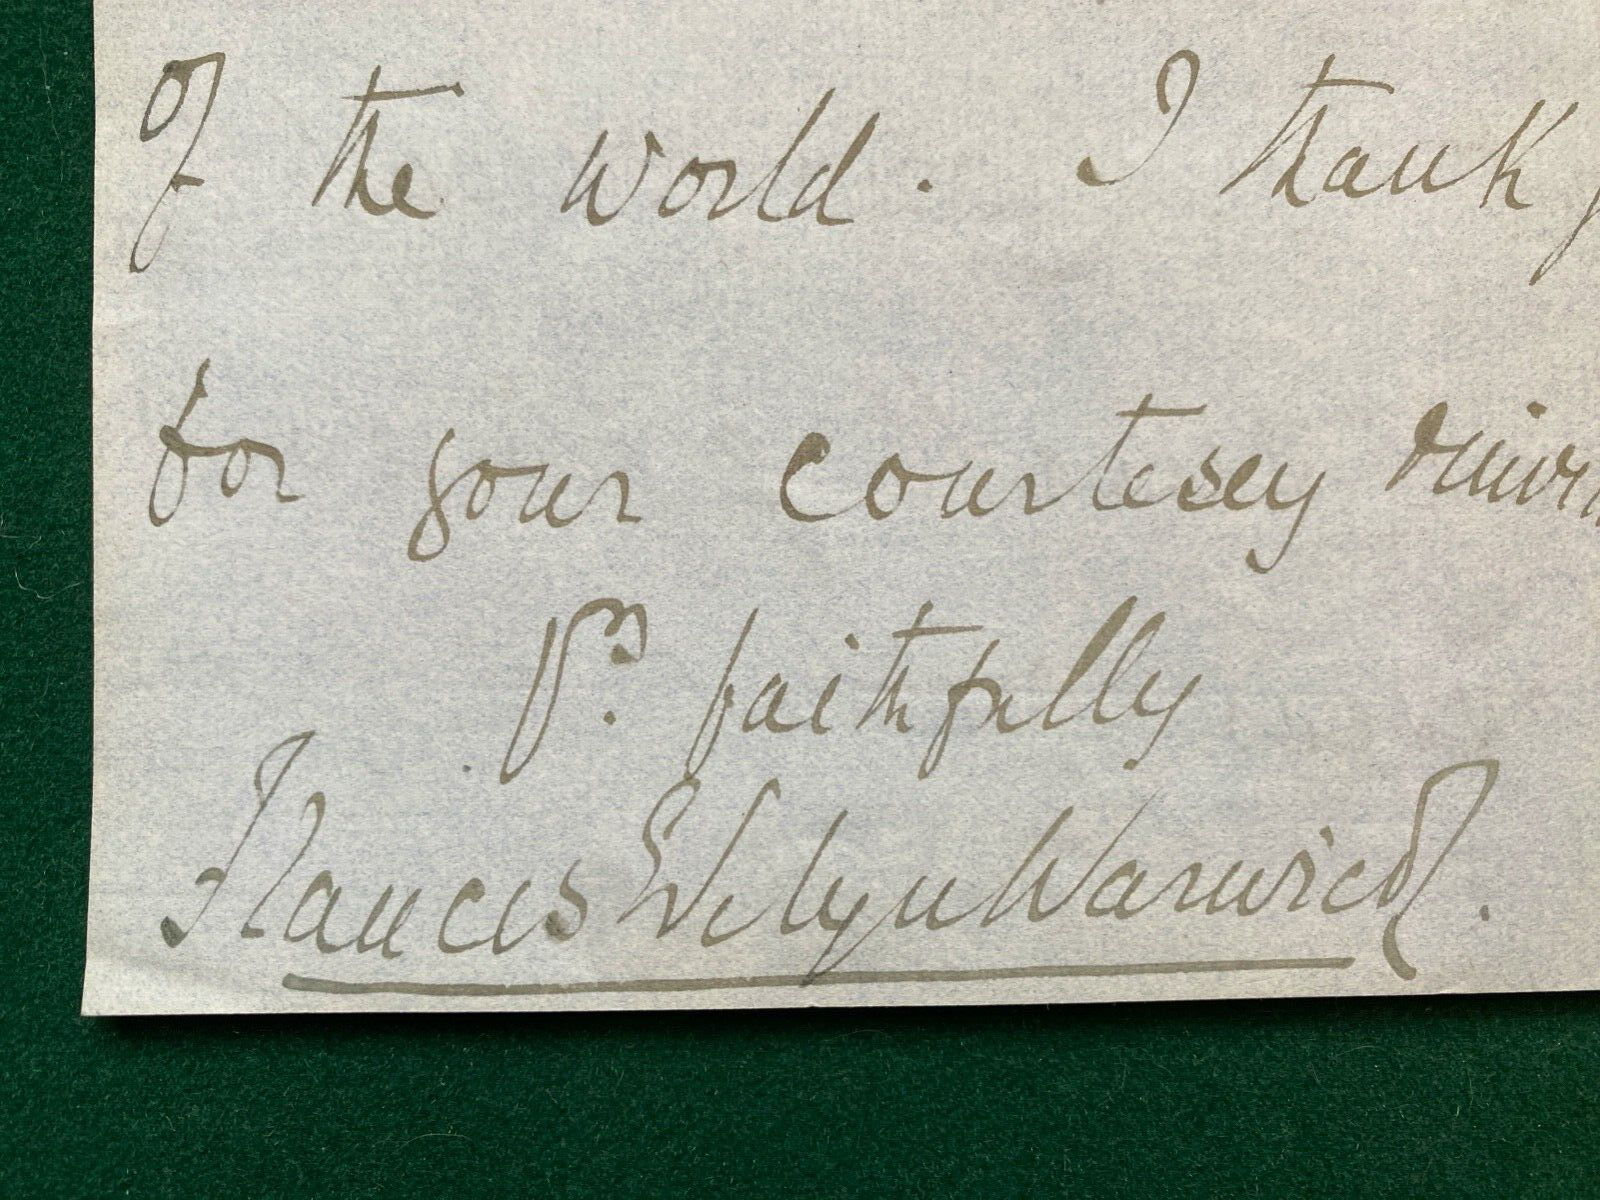 of the world. I thank
for your courtesey
Yrs. faithfully
Frances Evelyn Warwick.